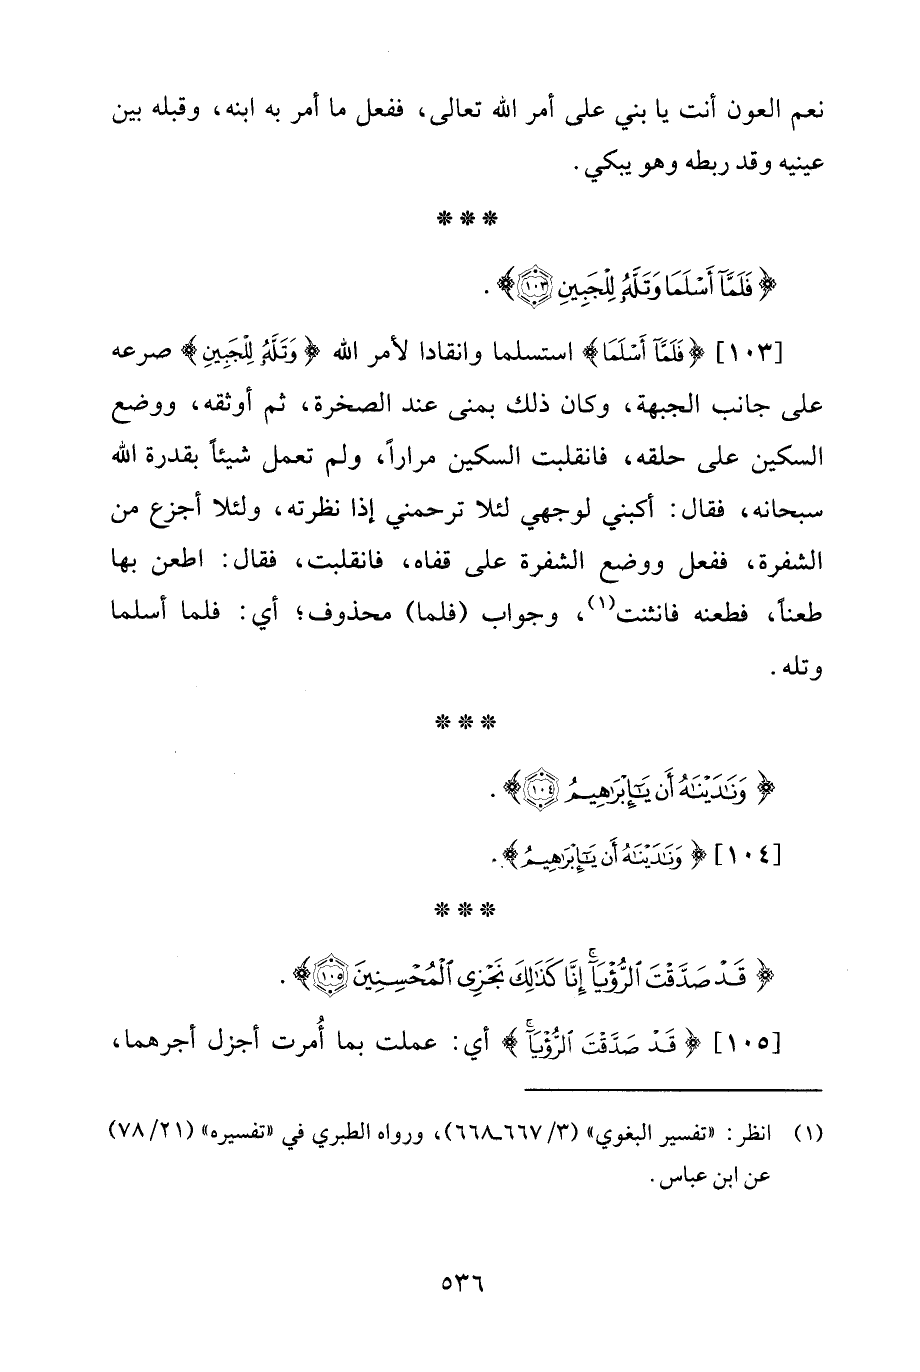 نعم العون أنت يا بني على أمر الله تعالى، ففعل ما أمر به ابنه، وقبله بين
عينيه وقد ربطه وهو يبكي.
* * *
﴿ فَلَمَّآ أَسْلَمَا وَتَلَّهُۥ لِلْجَبِينِ ١٠٣ ﴾ .
[١٠٣] ﴿ فَلَمَّآ أَسْلَمَا ﴾ استسلما وانقادا لأمر الله ﴿ وَتَلَّهُۥ لِلْجَبِينِ ﴾ صرعه
على جانب الجبهة، وكان ذلك بمنى عند الصخرة، ثم أوثقه، ووضع
السكين على حلقه، فانقلبت السكين مراراً، ولم تعمل شيئاً بقدرة الله
سبحانه، فقال: أكبني لوجهي لئلا ترحمني إذا نظرته، ولئلا أجزع من
الشفرة، ففعل ووضع الشفرة على قفاه، فانقلبت، فقال: اطعن بها
طعناً، فطعنه فانثنت(١)، وجواب (فلما) محذوف؛ أي: فلما أسلما
وتله.
* * *
﴿ وَنَٰدَيْنَٰهُ أَن يَٰٓإِبْرَٰهِيمُ ١٠٤ ﴾ .
[١٠٤] ﴿ وَنَٰدَيْنَٰهُ أَن يَٰٓإِبْرَٰهِيمُ ﴾ .
* * *
﴿ قَدْ صَدَّقْتَ ٱلرُّءْيَآ ۚ إِنَّا كَذَٰلِكَ نَجْزِى ٱلْمُحْسِنِينَ ١٠٥ ﴾ .
[١٠٥] ﴿ قَدْ صَدَّقْتَ ٱلرُّءْيَآ ۚ ﴾ أي: عملت بما أُمرت أجزل أجرهما،
(١) انظر: «تفسير البغوي» (٣/ ٦٦٧ـ٦٦٨)، ورواه الطبري في «تفسيره» (٢١/ ٧٨)
عن ابن عباس.
٥٣٦